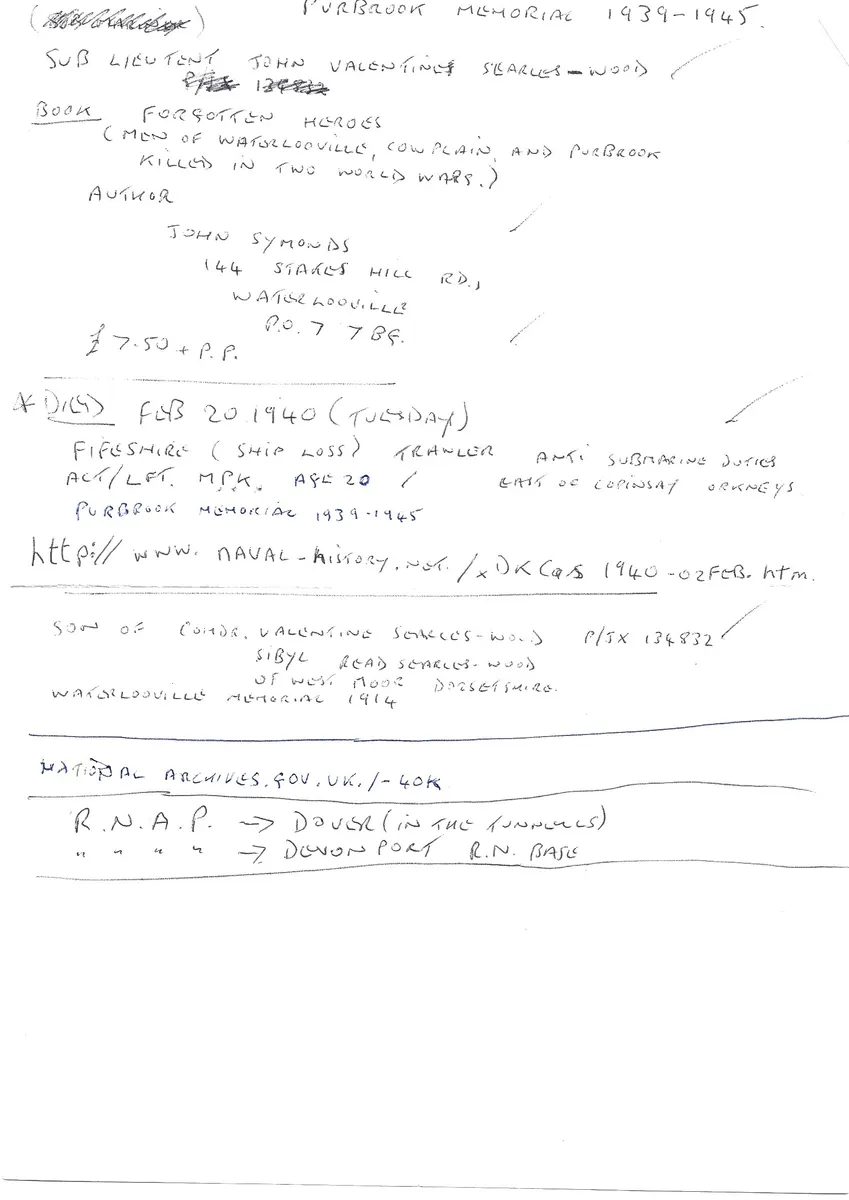 PURBROOK MEMORIAL 1939-1945.
SUB LIEUTENT JOHN VALENTINE SEARLES-WOOD
BOOK FORGOTTEN HEROES
(MEN OF WATERLOOVILLE, COWPLAIN, AND PURBROOK
KILLED IN TWO WORLD WARS.)
AUTHOR
JOHN SYMONDS
144 STAKES HILL RD.,
WATERLOOVILLE
P.O. 7 7BG.
£7.50 + P.P.
* DIED FEB 20 1940 (TUESDAY)
FIFESHIRE (SHIP LOSS) TRAWLER ANTI SUBMARINE DUTIES
ACT/LFT. MPK. AGE 20 / EAST OF COPINSAY ORKNEYS.
PURBROOK MEMORIAL 1939-1945
http:// www. NAVAL-HISTORY.NET./xDKCas 1940-02FEB.htm.
SON OF COMDR. VALENTINE SEARLES-WOOD P/JX 134832
SIBYL READ SEARLES-WOOD
OF WEST MOOR DORSETSHIRE.
WATERLOOVILLE MEMORIAL 1914
NATIONAL ARCHIVES.GOV.UK./-40K
R.N.A.P. -> DOVER (IN THE TUNNELLS)
" " " " -> DEVONPORT R.N. BASE